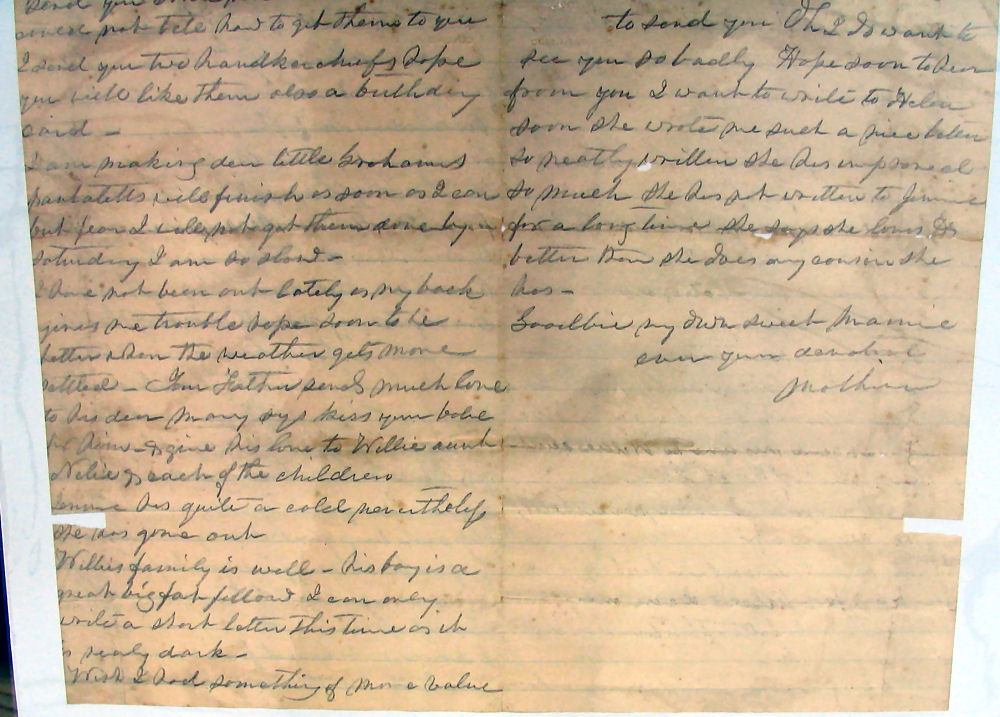 send you
not tell how to get them to you
I send you two handkerchiefs hope
you will like them also a birthday
card –
I am making dear little Grahams
pantaletts will finish as soon as I can
but fear I will not get them done by
saturday I am so slow –
I have not been out lately as my back
gives me trouble hope soon to be
better when the weather gets more
settled – Your Father sends much love
to his dear Mary says kiss your babe
for him – & give his love to Willie aunt
Nelie & each of the children
Jennie has quite a cold nevertheless
she has gone out
Willies family is well – his boy is a
great big fat fellow I can only
write a short letter this time as it
is realy dark –
Wish I had something of more value
to send you Oh I do want to
see you so badly Hope soon to hear
from you I want to write to Helen
soon she wrote me such a nice letter
so neatly written she has improved
so much she has not written to Jennie
for a long time she says she loves
better than she does any cousin she
has –
Goodbie my own sweet Mamie
ever your devoted
Mother